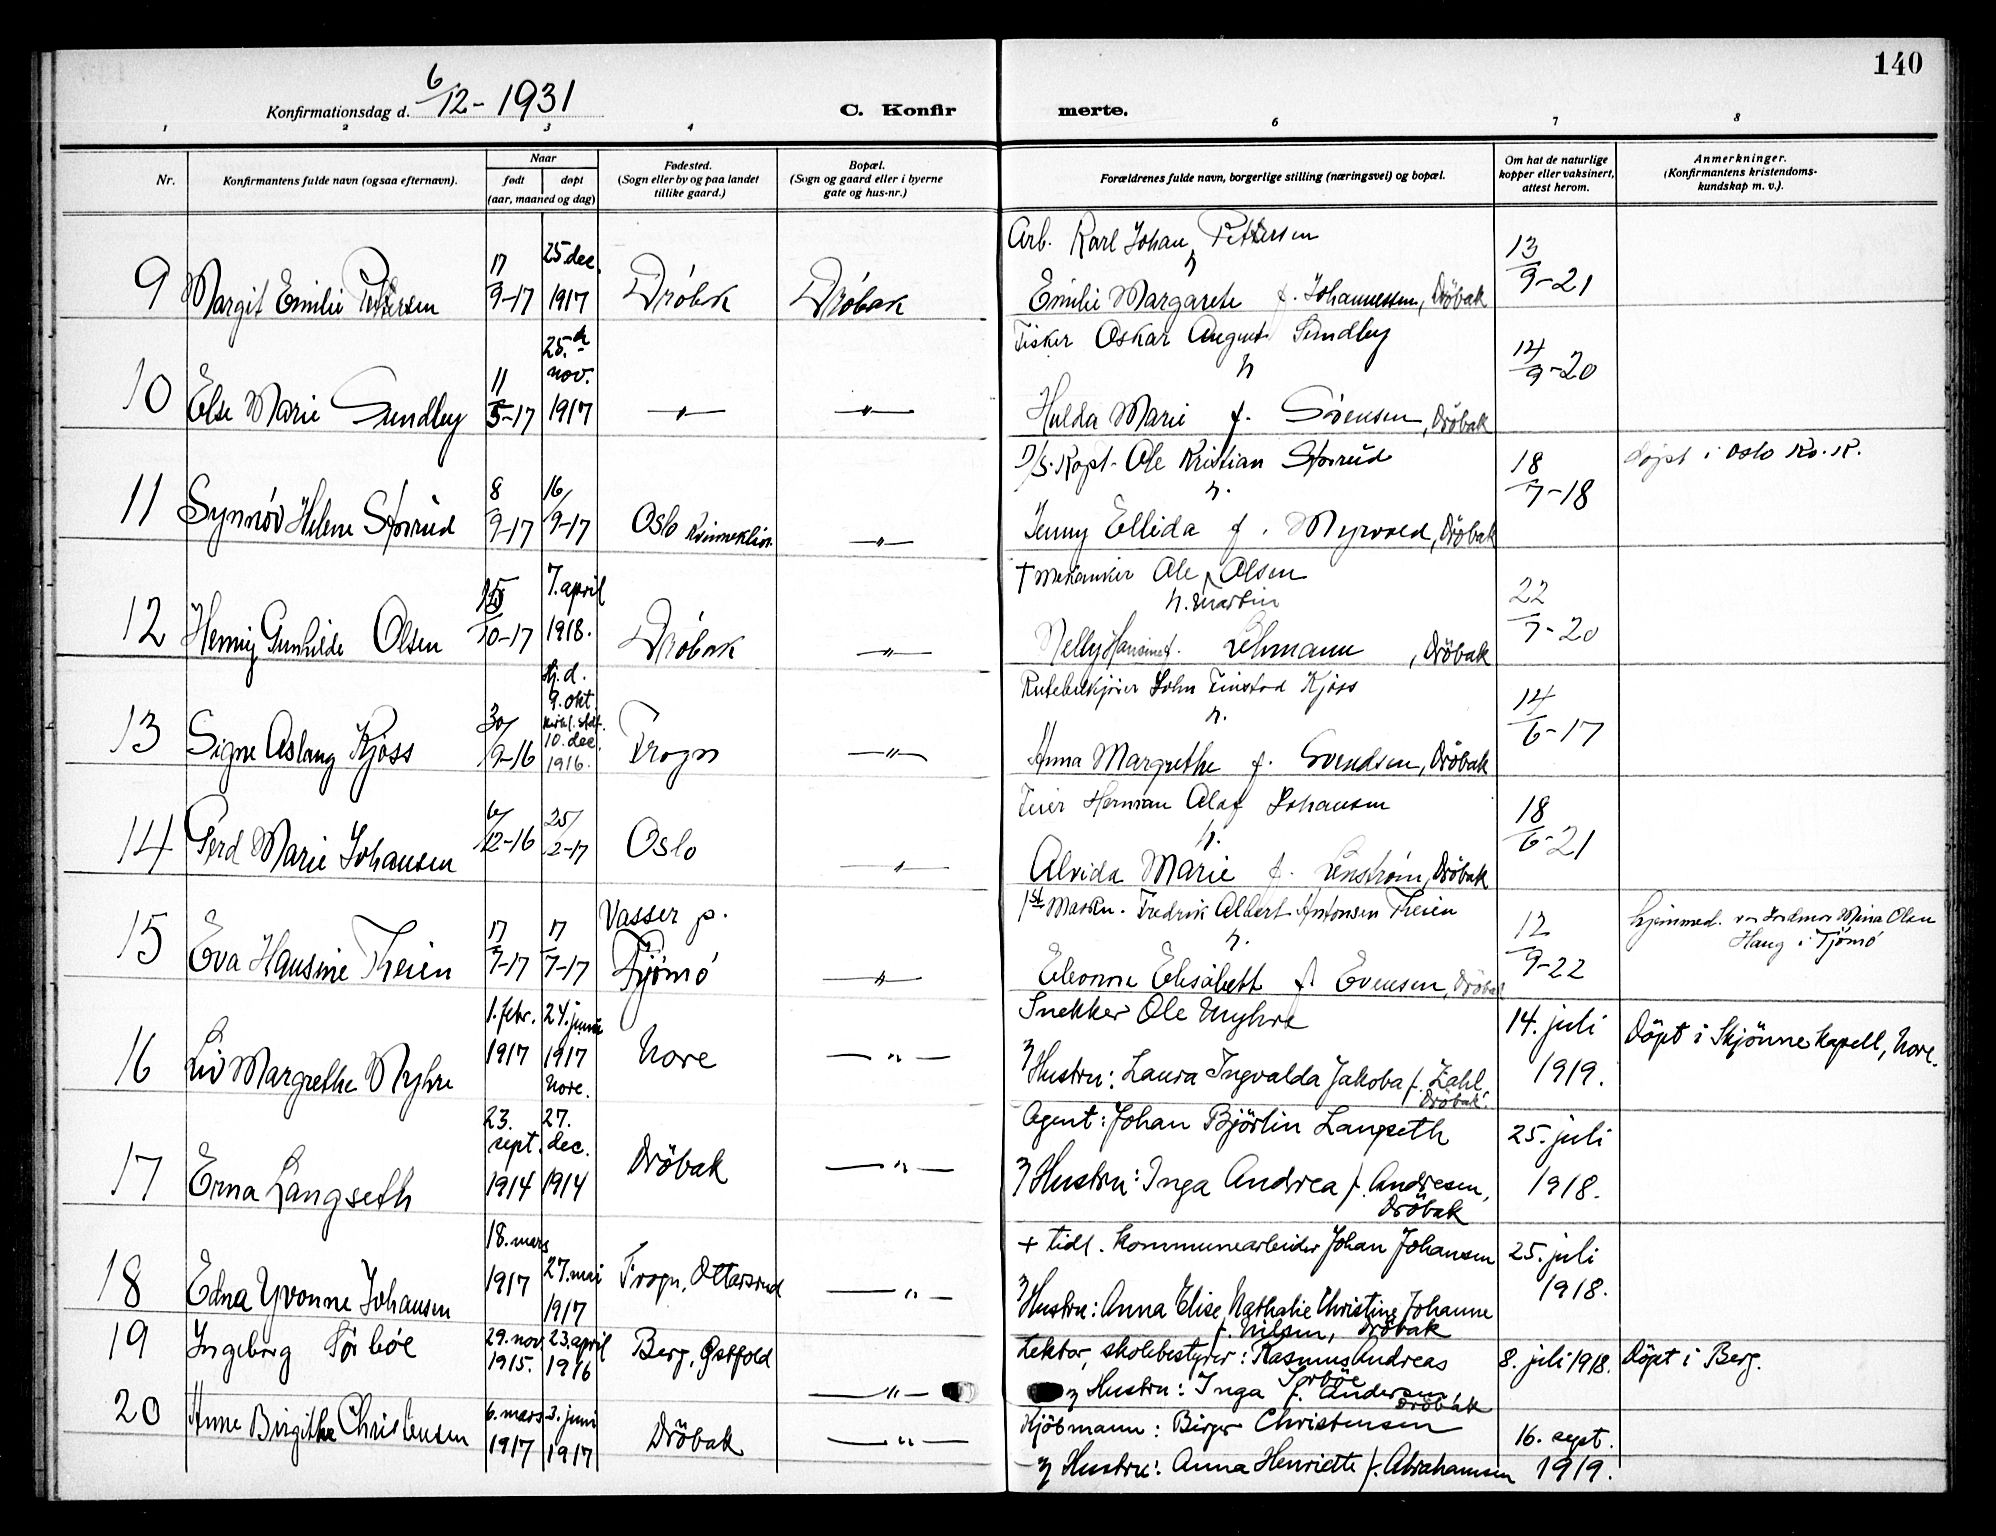 140
Konfirmationsdag d. 6/12 - 1931
C. Konfir merte.
1 2 3 4 6 7 8
Nr.
Konfirmantens fulde navn (ogsaa efternavn).
Naar
født døpt
(aar, maaned og dag)
Fødested.
(Sogn eller by og paa landet
tillike gaard.)
Bopæl.
(Sogn og gaard eller i byerne
gate og hus-nr.)
Forældrenes fulde navn, borgerlige stilling (næringsvei) og bopæl.
Om hat de naturlige
kopper eller vaksinert,
attest herom.
Anmerkninger.
(Konfirmantens kristendoms-
kundskap m. v.).
9 Margit Emilie Pettersen 17/9-17 25 dec. 1917 Dröbak Dröbak
Arb. Karl Johan Pettersen
h
Emilie Margarete f. Johannessen, Dröbak
13/9-21
10 Else Marie Sundby 11/5-17 25. nov. 1917 —〃— —〃—
Fisker Oskar August Sundby
h
Hulda Marie f. Sörensen, Dröbak
14/9-20
11 Synnöv Helene Storrud 8/9-17 16/9-17 Oslo Kvinneklin. —〃—
D/S. Kapt. Ole Kristian Storrud
h.
Jenny Ellida f. Myrvold, Dröbak
18/7-18
döpt i Oslo Kv. K.
12 Henny Gunhilde Olsen 15/10-17 7. april 1918. Dröbak —〃—
† Mekaniker Ole Olsen
h. Martin
Nelly Hansine f. Lehmann, Dröbak
22/7-20
13 Signe Aslaug Kjöss 30/9-16 Hj.d. 9. okt. kirkl. stdf. 10. dec. 1916. Frogn —〃—
Rutebilkjörer John Finstad Kjöss
h.
Anna Margrethe f. Svendsen, Dröbak
14/6-17
14 Gerd Marie Johansen 6/12-16 25/2-17 Oslo —〃—
Feier Herman Olaf Johansen
h.
Alvida Marie f. Lenström, Dröbak
18/6-21
15 Eva Hansine Theien 17/7-17 17/7-17 Vasser p. Tjömö —〃—
1st Mask. Fredrik Albert Antonsen Theien
h.
Eleonore Elisabett f. Evensen, Dröbak
12/9-22
hjemmed. v. Jordmor Mina Olsen
Haug i Tjömö
16 Liv Margrethe Myhre 1. febr. 1917 24. juni 1917 Nore. Nore —〃—
Snekker Ole Myhre
Hustru: Laura Ingvalda Jakoba f. Zahl,
Dröbak.
14. juli 1919.
Döpt i Skjönne kapell, Nore.
17 Erna Langseth 23. sept. 1914 27. dec. 1914 Dröbak —〃—
Agent: Johan Björlin Langseth
Hustru: Inga Andrea f. Andresen,
Dröbak
25. juli 1918.
18 Edna Yvonne Johansen 18. mars 1917 27. mai 1917 Frogn, Ottarsrud —〃—
+ tidl. kommunearbeider Johan Johansen
Hustru: Anna Elise Nathalie Christine Johanne
f. Nilsen, Dröbak
25. juli 1918.
19 Ingeborg Sörböe 29. nov. 1915. 23. april 1916 Berg, Østfold —〃—
Lektor, skolebestyrer: Rasmus Andreas
Sorböe
Hustru: Inga f. Andersen
Dröbak
8. juli 1918.
Döpt i Berg.
20 Anne Birgithe Christensen 6. mars 1917 3. juni 1917 Dröbak —〃—
Kjöbmann: Birger Christensen
Hustru: Anna Henriette f. Abrahamsen
16. sept. 1919.